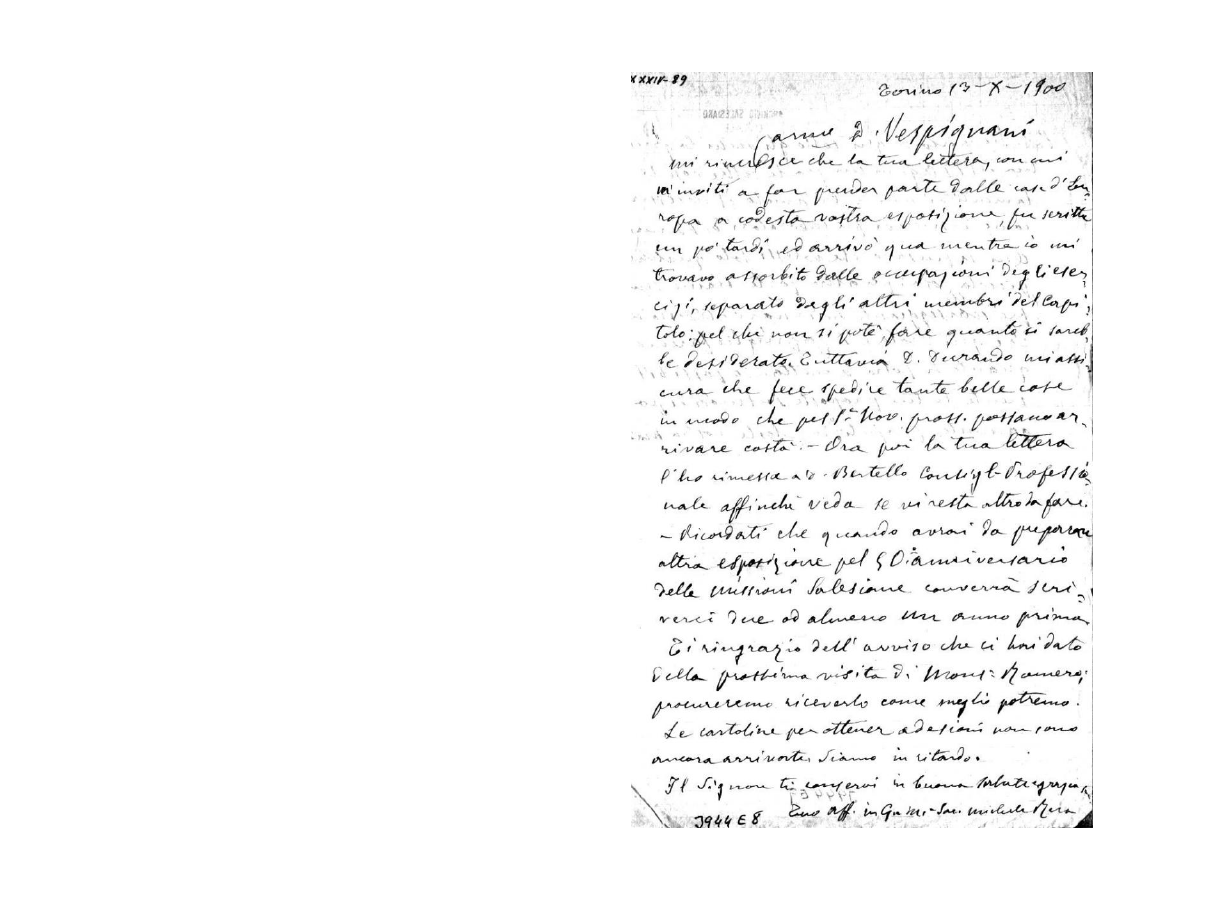 XXXIV-89
Torino 13-X-1900
ARCHIVIO SALESIANO
Carmo D. Vespignani
mi rincresce che la tua lettera, con cui
m'inviti a far prender parte dalle case d'Eu-
ropa a codesta vostra esposizione, fu scritta
un po' tardi, ed arrivò qua mentre io mi
trovavo assorbito dalle occupazioni degli eser-
cizi, separato dagli altri membri del Capi-
tolo: pel che non si potè fare quanto si sareb-
be desiderato. Tuttavia D. Durando mi assi-
cura che fece spedire tante belle cose
in modo che pel 1° Nov. pross. possano ar-
rivare costà. - Ora poi la tua lettera
l'ho rimessa a D. Bertello Consigl. Professio-
nale affinchè veda se vi resta altro da fare.
- Ricordati che quando avrai da preparare
altra esposizione pel 50° anniversario
delle missioni Salesiane converrà scri-
verci due od almeno un anno prima.
Ti ringrazio dell'avviso che ci hai dato
della prossima visita di Mons: Romero;
procureremo riceverlo come meglio potremo.
Le cartoline per ottener adesioni non sono
ancora arrivate. Siamo in ritardo.
Il Signore ti conservi in buona salute e grazia,
Tuo aff. in G. e M. Sac. Michele Rua
3944 E 8